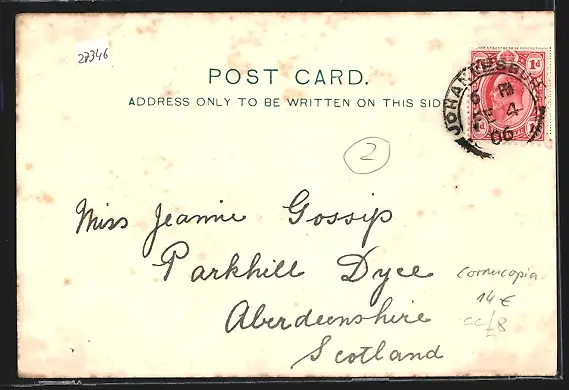 27346
POST CARD.
ADDRESS ONLY TO BE WRITTEN ON THIS SID
1d 1d
JOHANNESBURG
PM
4
06
2
Miss Jeannie Gossip
Parkhill Dyce
Aberdeenshire
Scotland
cornucopia
14 €